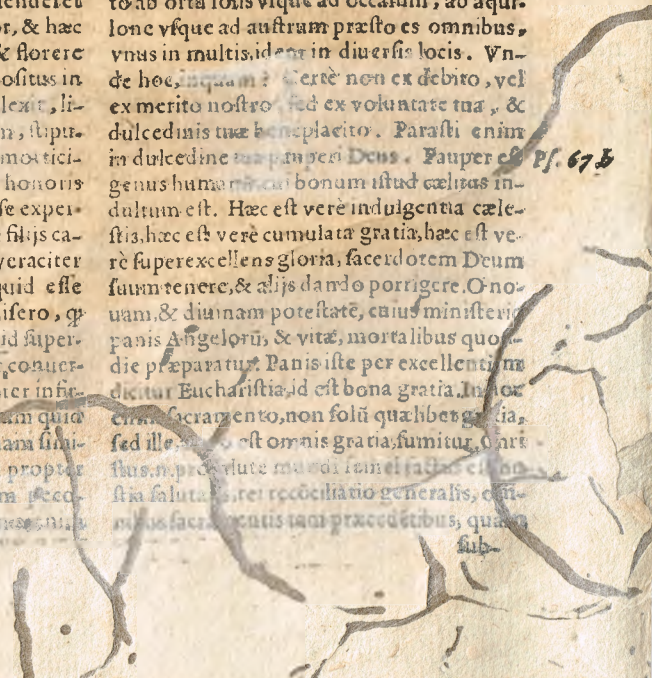 tendere
or, & hæc
& florere
ositus in
lexit, li-
m, stipu-
mortici-
honoris
se exper-
filijs ca-
veraciter
quid esse
isero, ꝙ
id super-
conuer-
ter infir-
am quid
nam simi-
propter
m peco-
to ab ortu solis vsque ad occasum, ab aqui-
lone vsque ad austrum præsto es omnibus,
vnus in multis, idem in diuersis locis. Vn-
de hoc, inquam? Certè non ex debito, vel
ex merito nostro, sed ex voluntate tua, &
dulcedinis tuæ beneplacito. Parasti enim
in dulcedine tua pauperi Deus. Pauper est
genus humanum cui bonum istud cælitus in-
dultum est. Hæc est verè indulgentia cæle-
stis, hæc est verè cumulata gratia, hæc est ve-
rè superexcellens gloria, sacerdotem Deum
suum tenere, & alijs dando porrigere. O no-
uam, & diuinam potestatē, cuius ministerio
panis Angelorū, & vitæ, mortalibus quoti-
die præparatur. Panis iste per excellentiam
dicitur Eucharistia, id est bona gratia. In hoc
enim sacramento, non solū quælibet gratia,
sed ille, à quo est omnis gratia, sumitur. Chri
stus .n. pro salute mundi semel factus est ho-
stia salutaris, rei recōciliatio generalis, omni-
nibus sacramentis tam præcedētibus, quam
sub-
Ps. 67 b